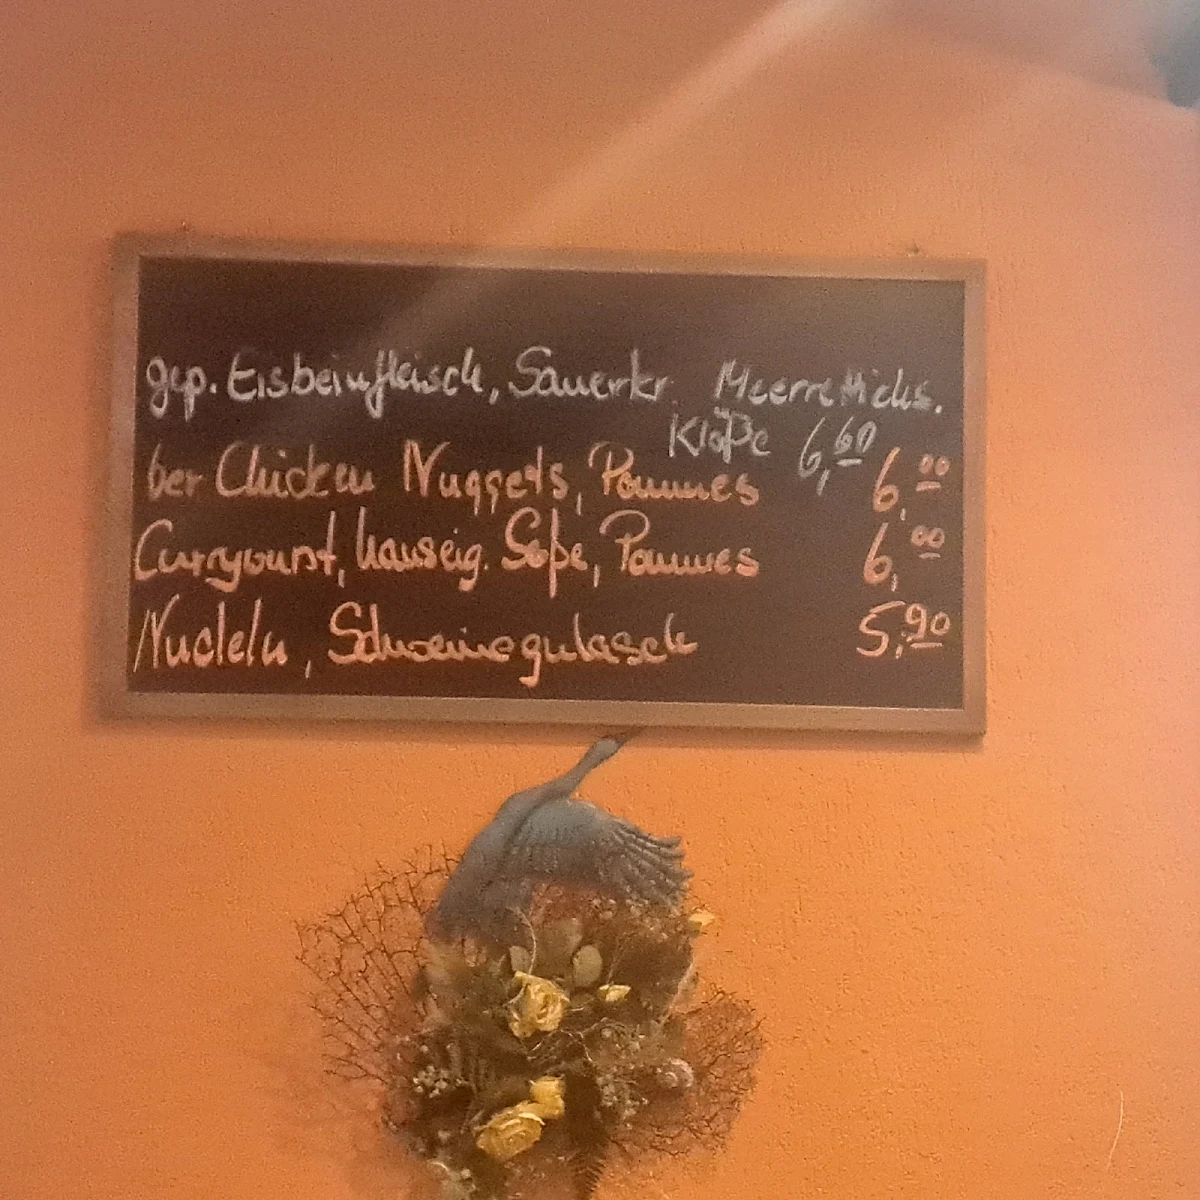 gep. Eisbeinfleisch, Sauerkr. Meerrettichs.
Klöße 6,60
6er Chicken Nuggets, Pommes 6,00
Currywurst, hauseig. Soße, Pommes 6,00
Nudeln, Schweinegulasch 5,90